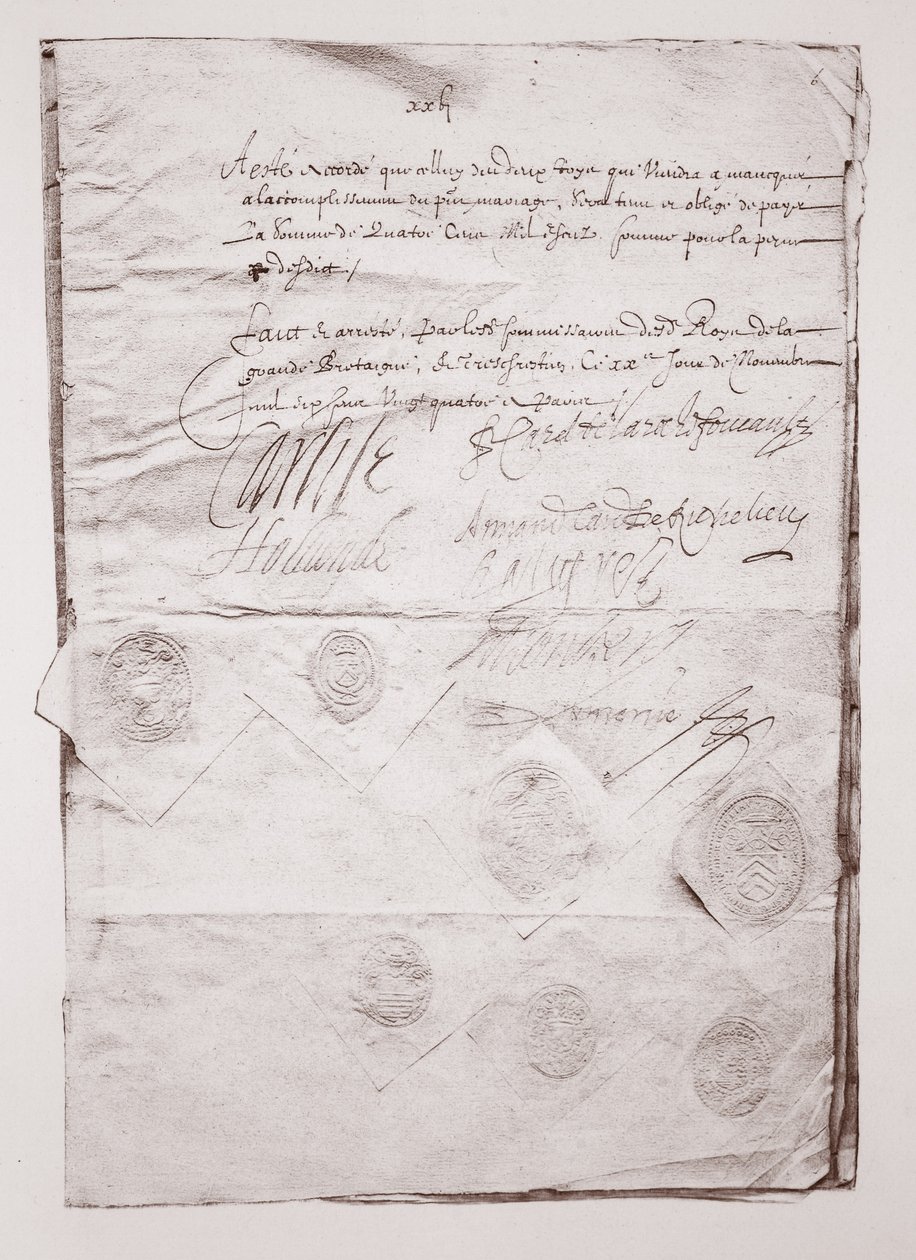 6
xxvj
A esté accordé que celluy desd. deux Roys qui viendra a mancquer
a laccomplissement du pnt mariage, sera tenu et obligé de payer
La somme de Quatre Cens Mil escuz, comme pour la peine
desdict /
Faict & arresté, par les Commissaires desd. Roys de la
grande Bretaigne, & treschrestien, Ce xxe Jour de Novembre
mil six Cens Vingt quatre a Paris /
Carlile
F Card de la rochefoucault
Holande
Armand Card de Richelieu
Delomenie